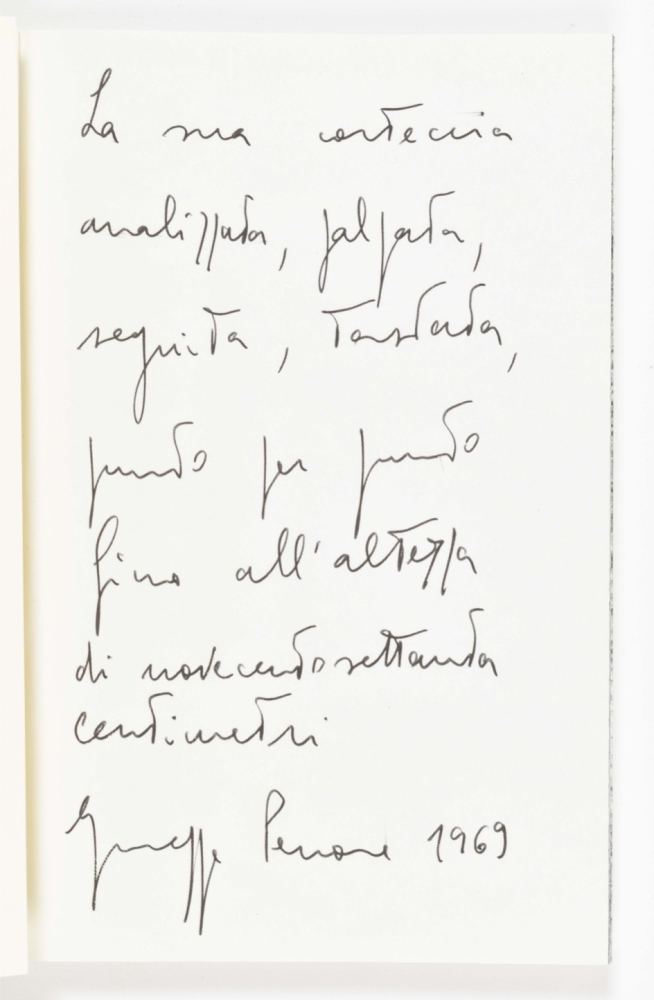 La sua corteccia
analizzata, palpata,
seguita, tastata,
punto per punto
fino all'altezza
di novecentosettanta
centimetri
Giuseppe Penone 1969